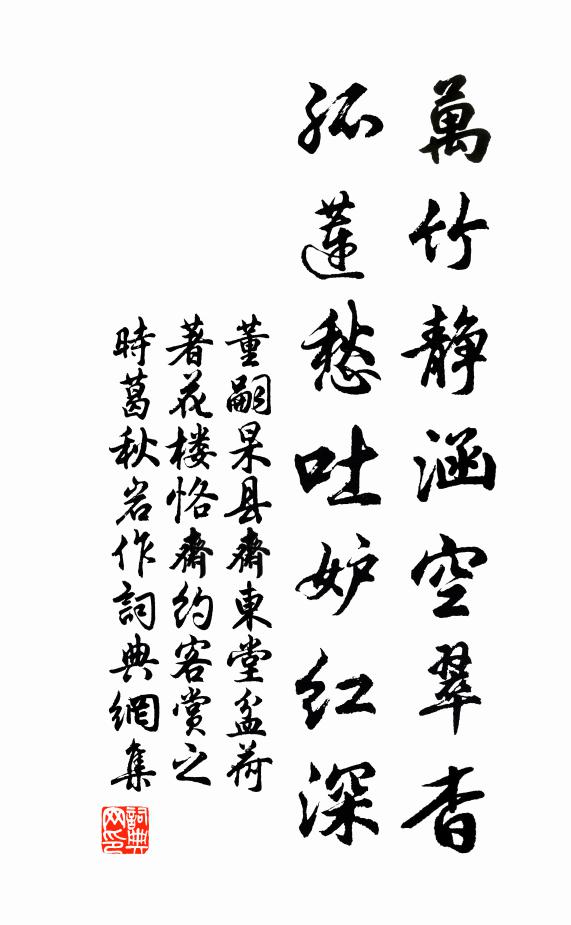 萬竹静涵空翠杳
孤蓮愁吐妒红深
董嗣杲县齋東堂盆荷
著花楼恪齋约客賞之
時葛秋岩作詞典網集
詞典网印